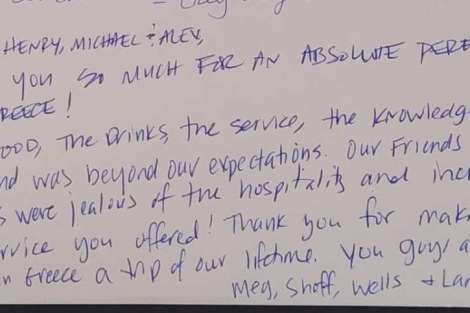 HENRY, MICHAEL & ALEX,
YOU SO MUCH FOR AN ABSOLUTE
GREECE!
FOOD, THE Drinks, the service, the Knowledg
nd was beyond our expectations. Our Friends
s were jealous of the hospitality and inc
rvice you offered! Thank you for mak
n Greece a trip of our lifetime. You guys a
Meg, Shoff, Wells + Lan